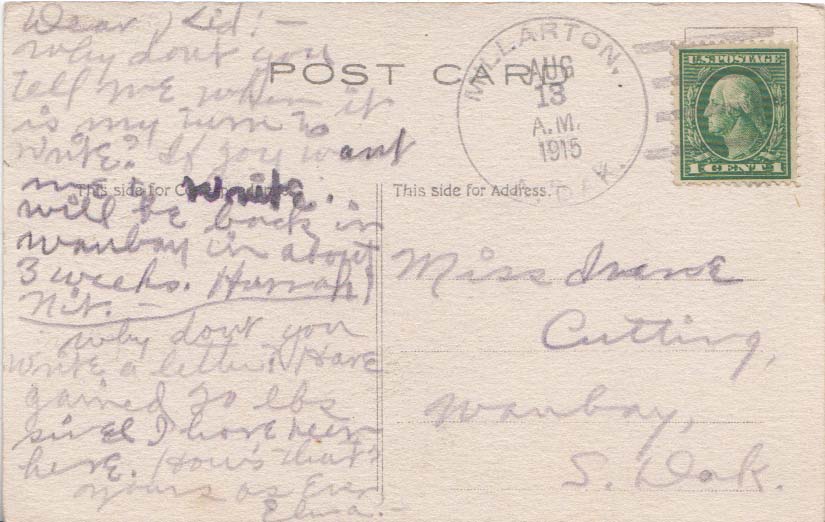 Dear Kid!—
Why don't you
tell me when it
is my turn to
write? If you want
me to write.
will be back in
Waubay in about
3 weeks. Hurrah!
Nit.—
Why dont you
write a letter? Have
gained 20 lbs
since I have been
here. How's that?
Yours as Ever
Elma.—
POST CARD
This side for Correspondence.
This side for Address.
MILLARTON,
AUG
13
A.M.
1915
DAK.
U.S. POSTAGE
1 CENT 1
Miss Irene
Cutting,
Waubay,
S. Dak.